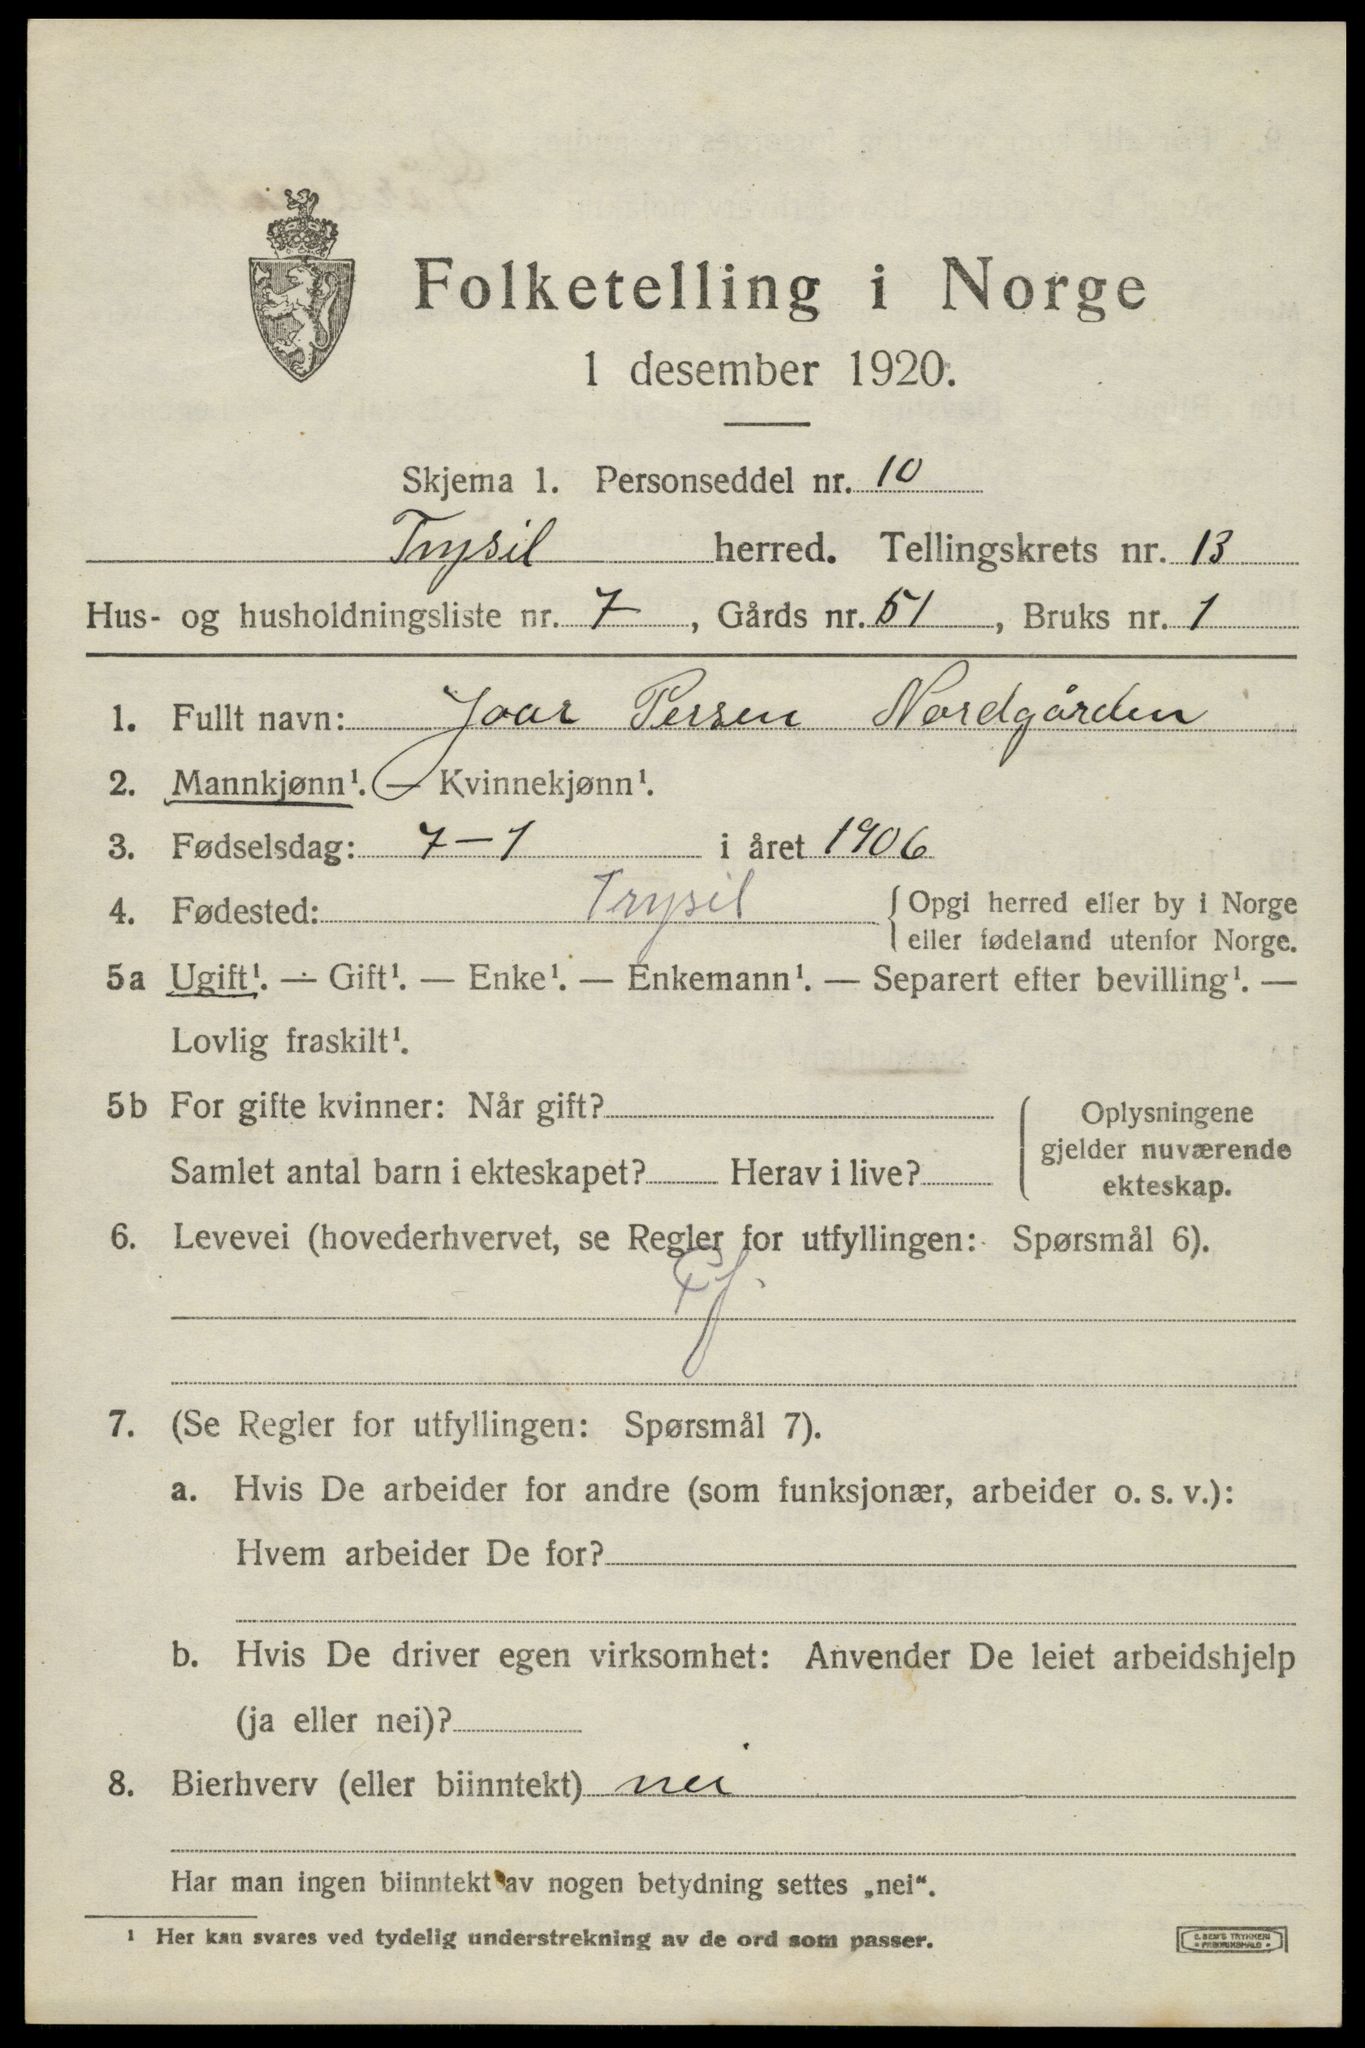 Folketelling i Norge
1 desember 1920.
Skjema 1. Personseddel nr. 10
Trysil herred. Tellingskrets nr. 13
Hus- og husholdningsliste nr. 7, Gårds nr. 51, Bruks nr. 1
1. Fullt navn: Joar Persen Nordgården
2. Mannkjønn¹. — Kvinnekjønn¹.
3. Fødselsdag: 7-1 i året 1906
4. Fødested: Trysil {Opgi herred eller by i Norge
eller fødeland utenfor Norge.
5a Ugift¹. — Gift¹. — Enke¹. — Enkemann¹. — Separert efter bevilling¹. —
Lovlig fraskilt¹.
5b For gifte kvinner: Når gift?
Samlet antal barn i ekteskapet? Herav i live?
Oplysningene
gjelder nuværende
ekteskap.
6. Levevei (hovederhvervet, se Regler for utfyllingen: Spørsmål 6).
7. (Se Regler for utfyllingen: Spørsmål 7).
a. Hvis De arbeider for andre (som funksjonær, arbeider o. s. v.):
Hvem arbeider De for?
b. Hvis De driver egen virksomhet: Anvender De leiet arbeidshjelp
(ja eller nei)?
8. Bierhverv (eller biinntekt) nei
Har man ingen biinntekt av nogen betydning settes „nei“.
¹ Her kan svares ved tydelig understrekning av de ord som passer.